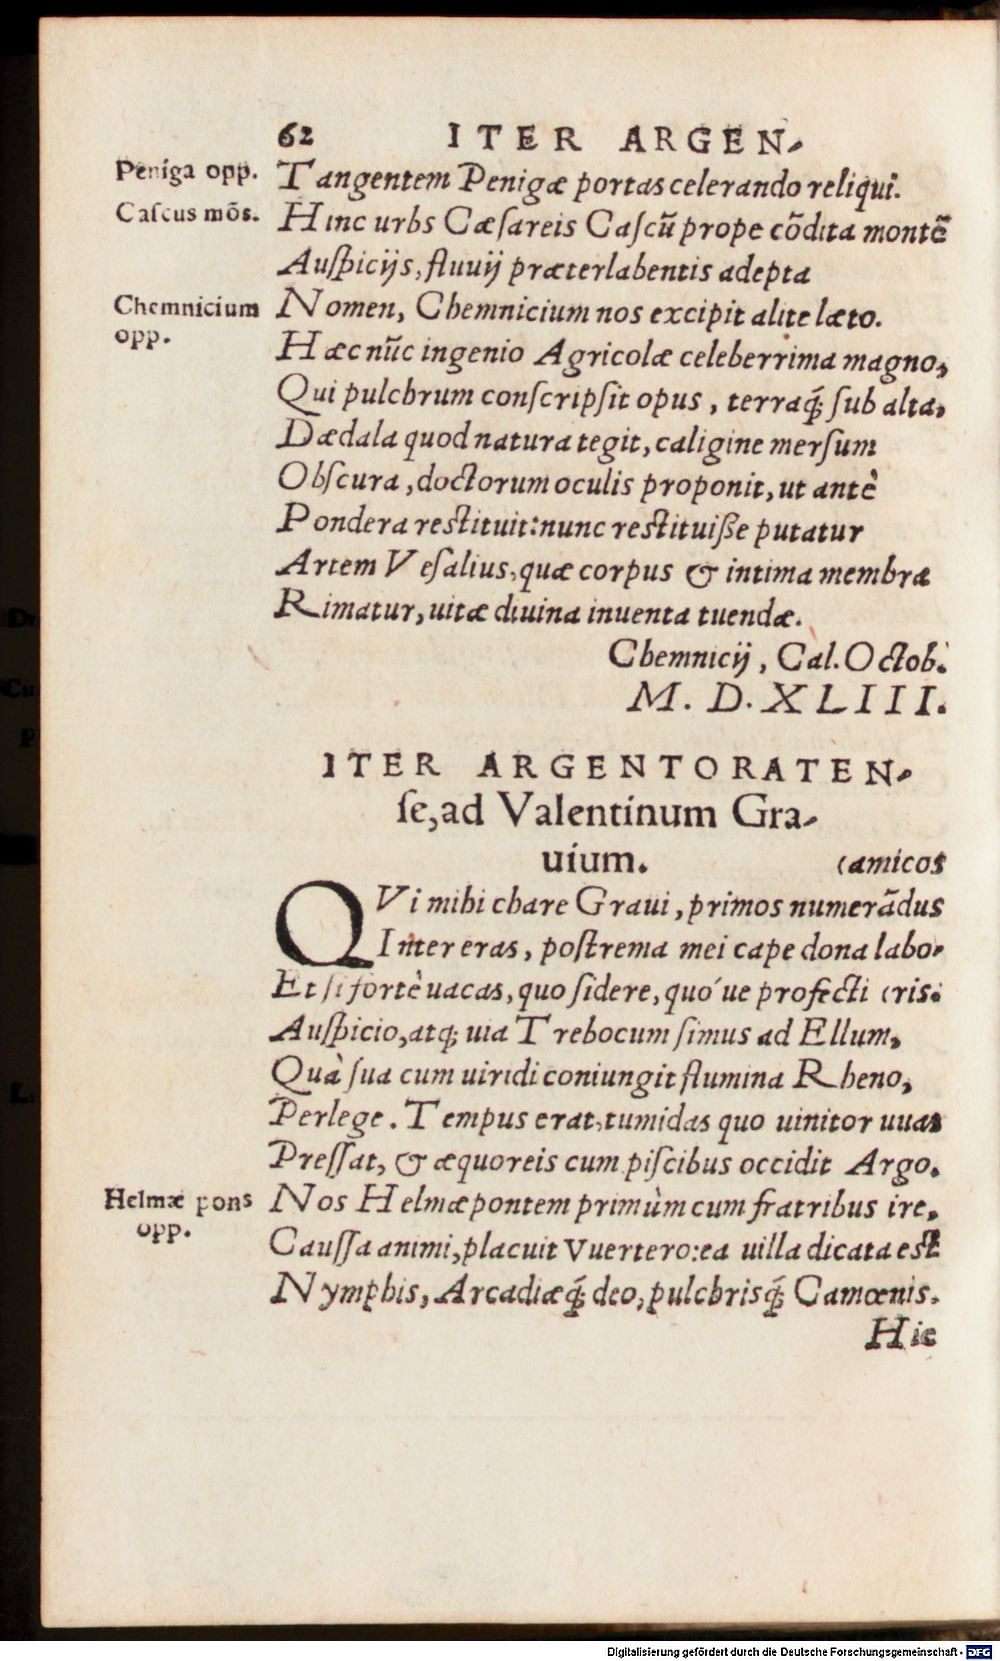 62 ITER ARGEN-
Peniga opp. Tangentem Penigæ portas celerando reliqui.
Caſcus mõs. Hinc urbs Cæſareis Caſcũ prope cõdita montẽ
Auſpicijs, fluuij præterlabentis adepta
Chemnicium Nomen, Chemnicium nos excipit alite læto.
opp.
Hæc nũc ingenio Agricolæ celeberrima magno,
Qui pulchrum conſcripſit opus, terraq́; ſub alta,
Dædala quod natura tegit, caligine merſum
Obſcura, doctorum oculis proponit, ut antè
Pondera reſtituit: nunc reſtituiſſe putatur
Artem Veſalius, quæ corpus & intima membra
Rimatur, uitæ diuina inuenta tuendæ.
Chemnicij, Cal. Octob.
M. D. XLIII.
ITER ARGENTORATEN-
ſe, ad Valentinum Gra-
uium. (amicos
QVi mihi chare Graui, primos numerãdus
Inter eras, poſtrema mei cape dona labo-
Et ſi fortè uacas, quo ſidere, quo´ue profecti (ris:
Auſpicio, atq; uia Trebocum ſimus ad Ellum,
Quà ſua cum uiridi coniungit flumina Rheno,
Perlege. Tempus erat, tumidas quo uinitor uuas
Preſſat, & æquoreis cum piſcibus occidit Argo.
Helmæ pons Nos Helmæpontem primùm cum fratribus ire,
opp.
Cauſſa animi, placuit Vuertero: ea uilla dicata eſt
Nymphis, Arcadiæq́; deo, pulchrisq́; Camœnis.
Hic
Digitalisierung gefördert durch die Deutsche Forschungsgemeinschaft - DFG